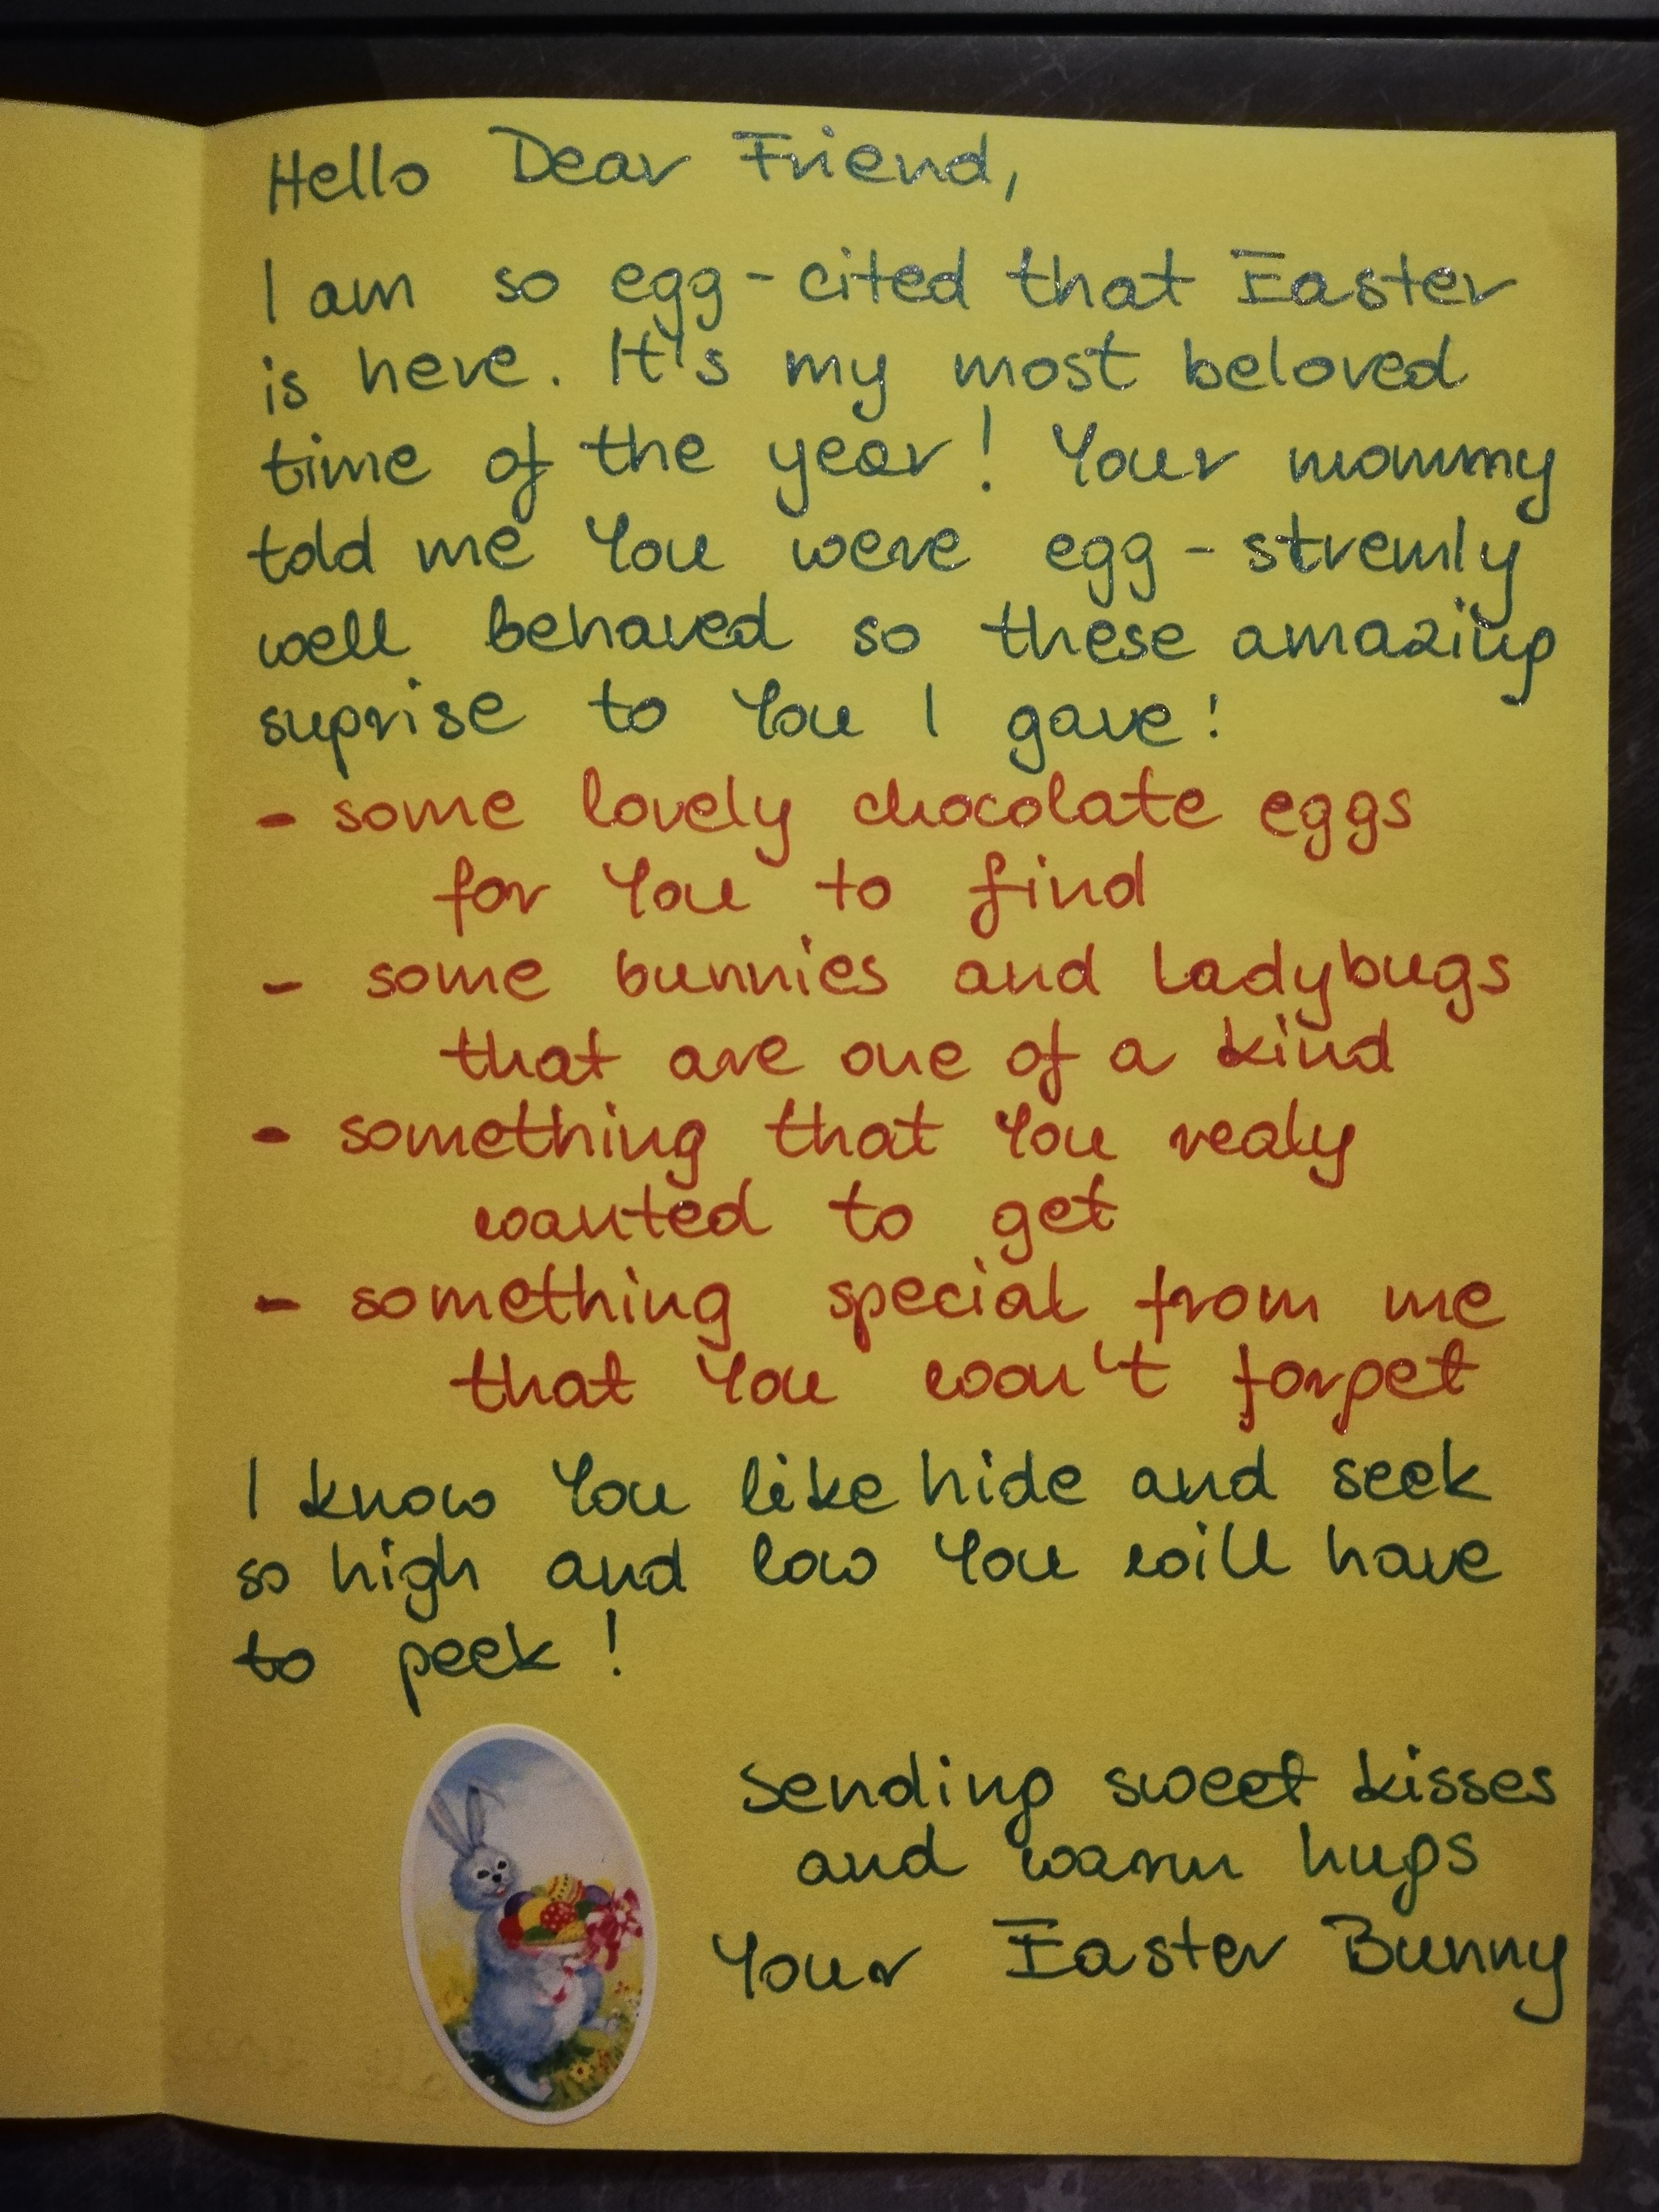 Hello Dear Friend,
I am so egg-cited that Easter
is here. It's my most beloved
time of the year! Your mommy
told me You were egg-stremly
well behaved so these amazing
suprise to You I gave!
- some lovely chocolate eggs
for You to find
- some bunnies and ladybugs
that are one of a kind
- something that You realy
wanted to get
- something special from me
that You won't forget
I know You like hide and seek
so high and low You will have
to peek!
Sending sweet kisses
and warm hugs
Your Easter Bunny